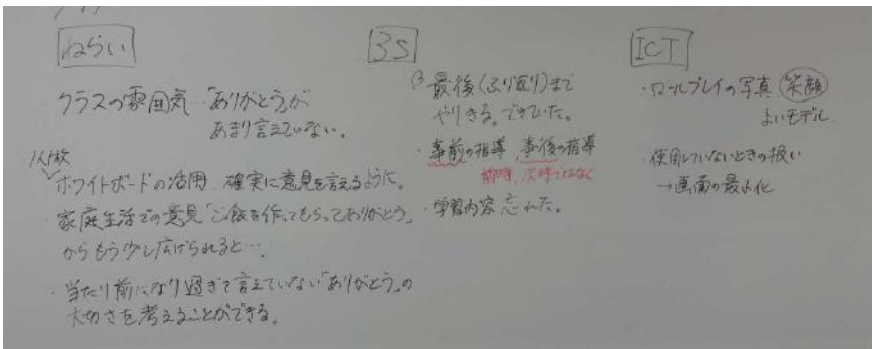 ねらい
クラスの雰囲気…「ありがとう」が
あまり言えていない。
1人1枚
ホワイトボードの活用 確実に意見を言えるように。
・家庭生活での意見「ご飯を作ってもらってありがとう」
からもう少し広げられると…
・当たり前になり過ぎて言えていない「ありがとう」の
大切さを考えることができる。
3S
最後(ふり返り)まで
やりきる。できていた。
・事前の指導、事後の指導
前時、次時ではなく
・学習内容忘れた。
ICT
・ロールプレイの写真 笑顔
よいモデル
・使用していないときの扱い
→画面の最小化